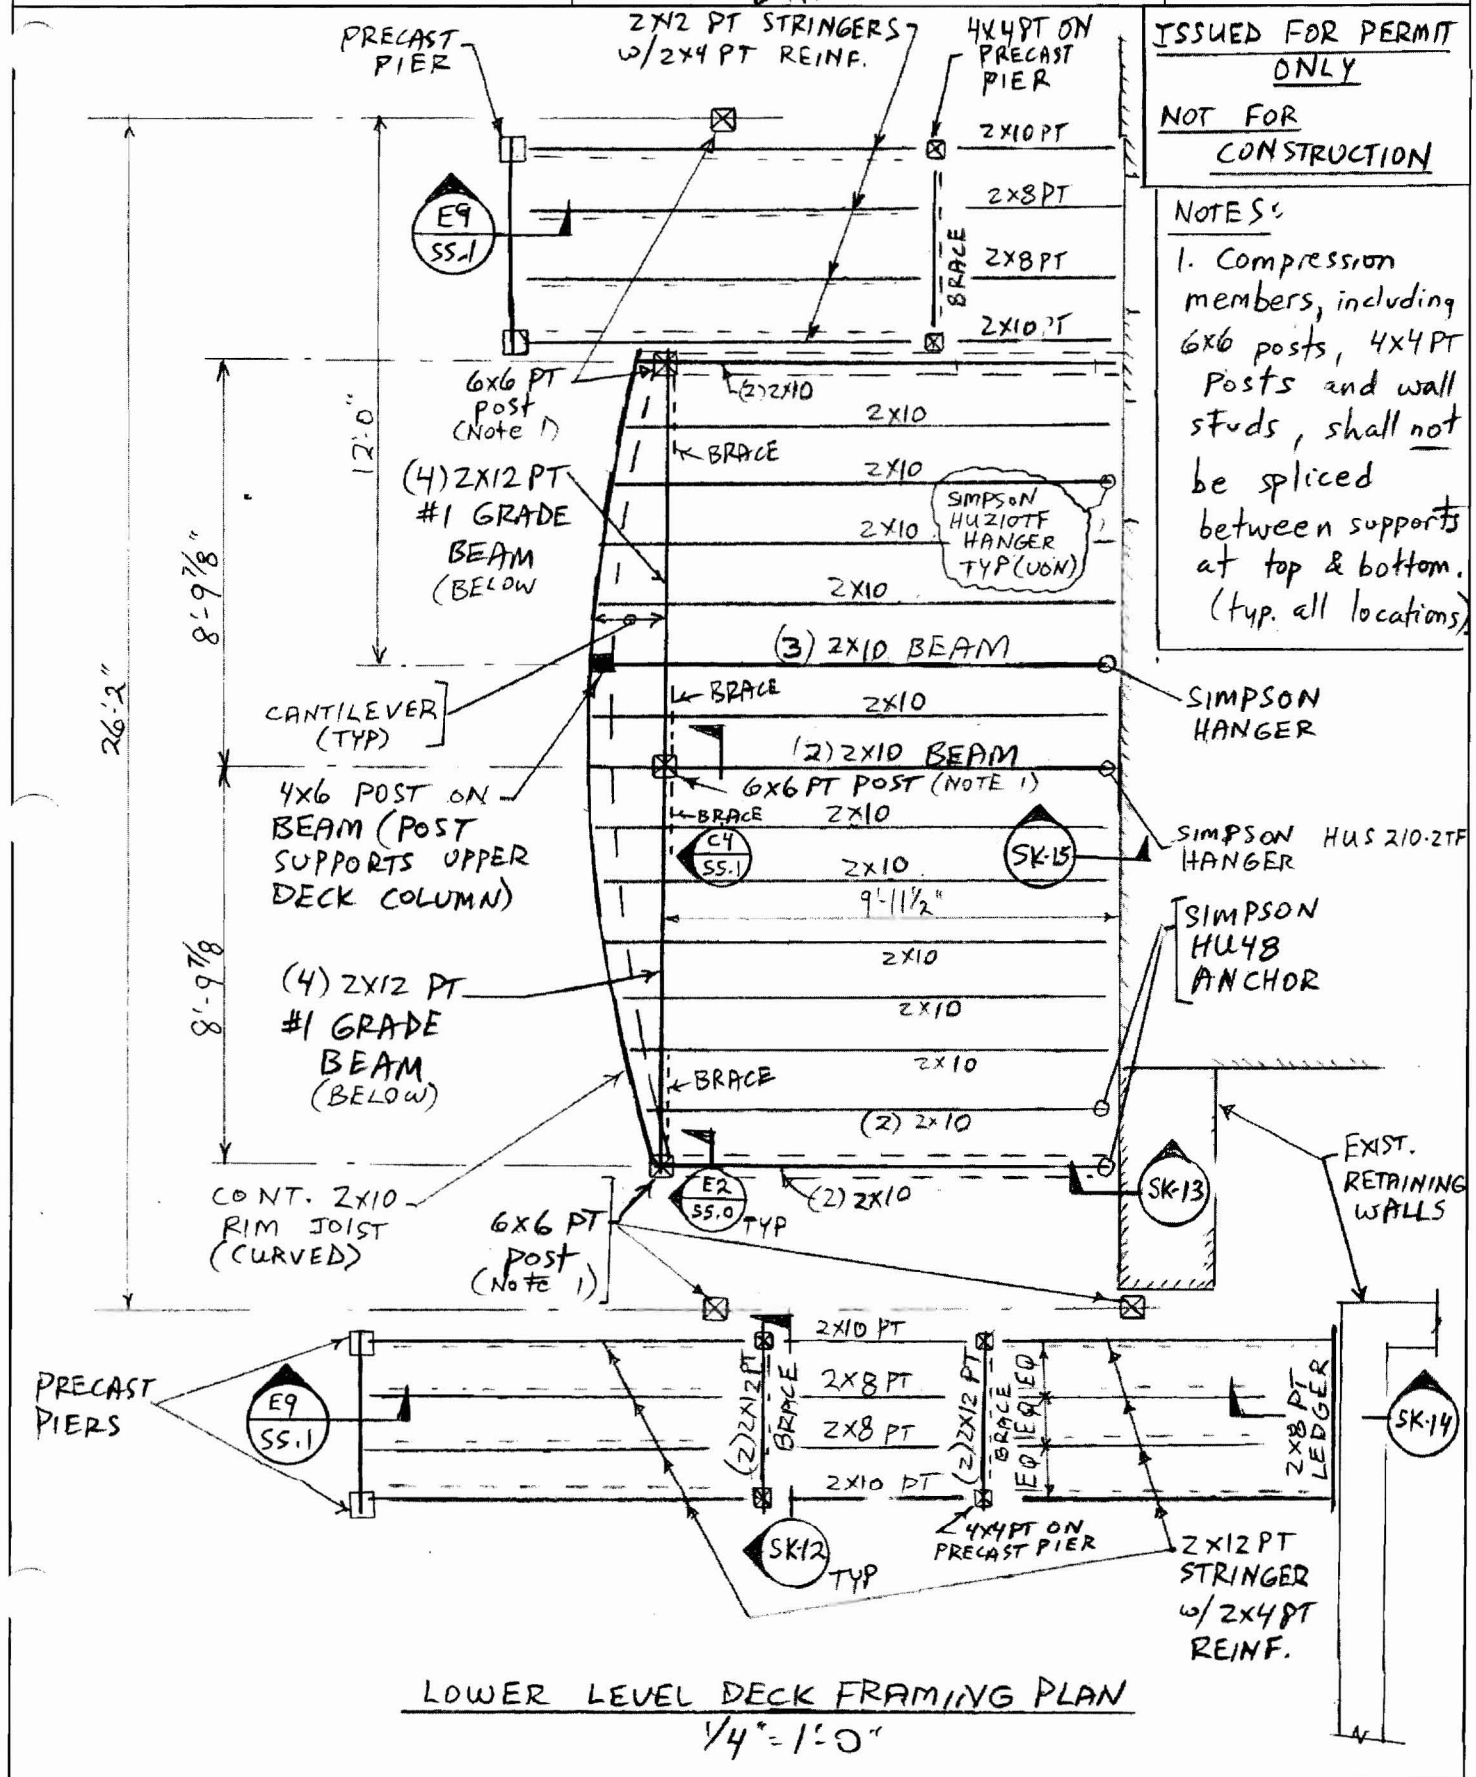 PRECAST
PIER
2X12 PT STRINGERS
W/2X4 PT REINF.
4X4PT ON
PRECAST
PIER
ISSUED FOR PERMIT
ONLY
NOT FOR
CONSTRUCTION
NOTES:
1. Compression
members, including
6x6 posts, 4x4 PT
Posts and wall
studs, shall not
be spliced
between supports
at top & bottom.
(typ. all locations)
2X10 PT
2X8 PT
2X8 PT
2X10 PT
BRACE
E9
SS.1
26'-2"
12'-0"
8'-9 7/8"
8'-9 7/8
6x6 PT
post
(Note 1)
(2) 2X10
2X10
BRACE
2X10
(4) 2X12 PT
#1 GRADE
BEAM
(BELOW
SIMPSON
HU210TF
HANGER
TYP (UON)
2X10
2X10
(3) 2X10 BEAM
SIMPSON
HANGER
CANTILEVER
(TYP)
BRACE
2X10
(2) 2X10 BEAM
6X6 PT POST (NOTE 1)
4X6 POST ON
BEAM (POST
SUPPORTS UPPER
DECK COLUMN)
BRACE
2X10
C4
SS.1
SK-15
SIMPSON HUS 210-2TF
HANGER
2X10
9'-11 1/2"
SIMPSON
HU48
ANCHOR
2X10
(4) 2X12 PT
#1 GRADE
BEAM
(BELOW)
2X10
2X10
BRACE
(2) 2X10
EXIST.
RETAINING
WALLS
CONT. 2X10
RIM JOIST
(CURVED)
6X6 PT
post
(Note 1)
E2
SS.0
TYP
(2) 2X10
SK-13
PRECAST
PIERS
E9
SS.1
2X10 PT
2X8 PT
2X8 PT
2X10 PT
(2) 2X12 PT
BRACE
(2) 2X12 PT
BRACE
EQ EQ EQ
2X8 PT
LEDGER
SK-14
4X4PT ON
PRECAST PIER
SK-12
TYP
2X12 PT
STRINGER
W/ 2X4 PT
REINF.
LOWER LEVEL DECK FRAMING PLAN
1/4" = 1'-0"